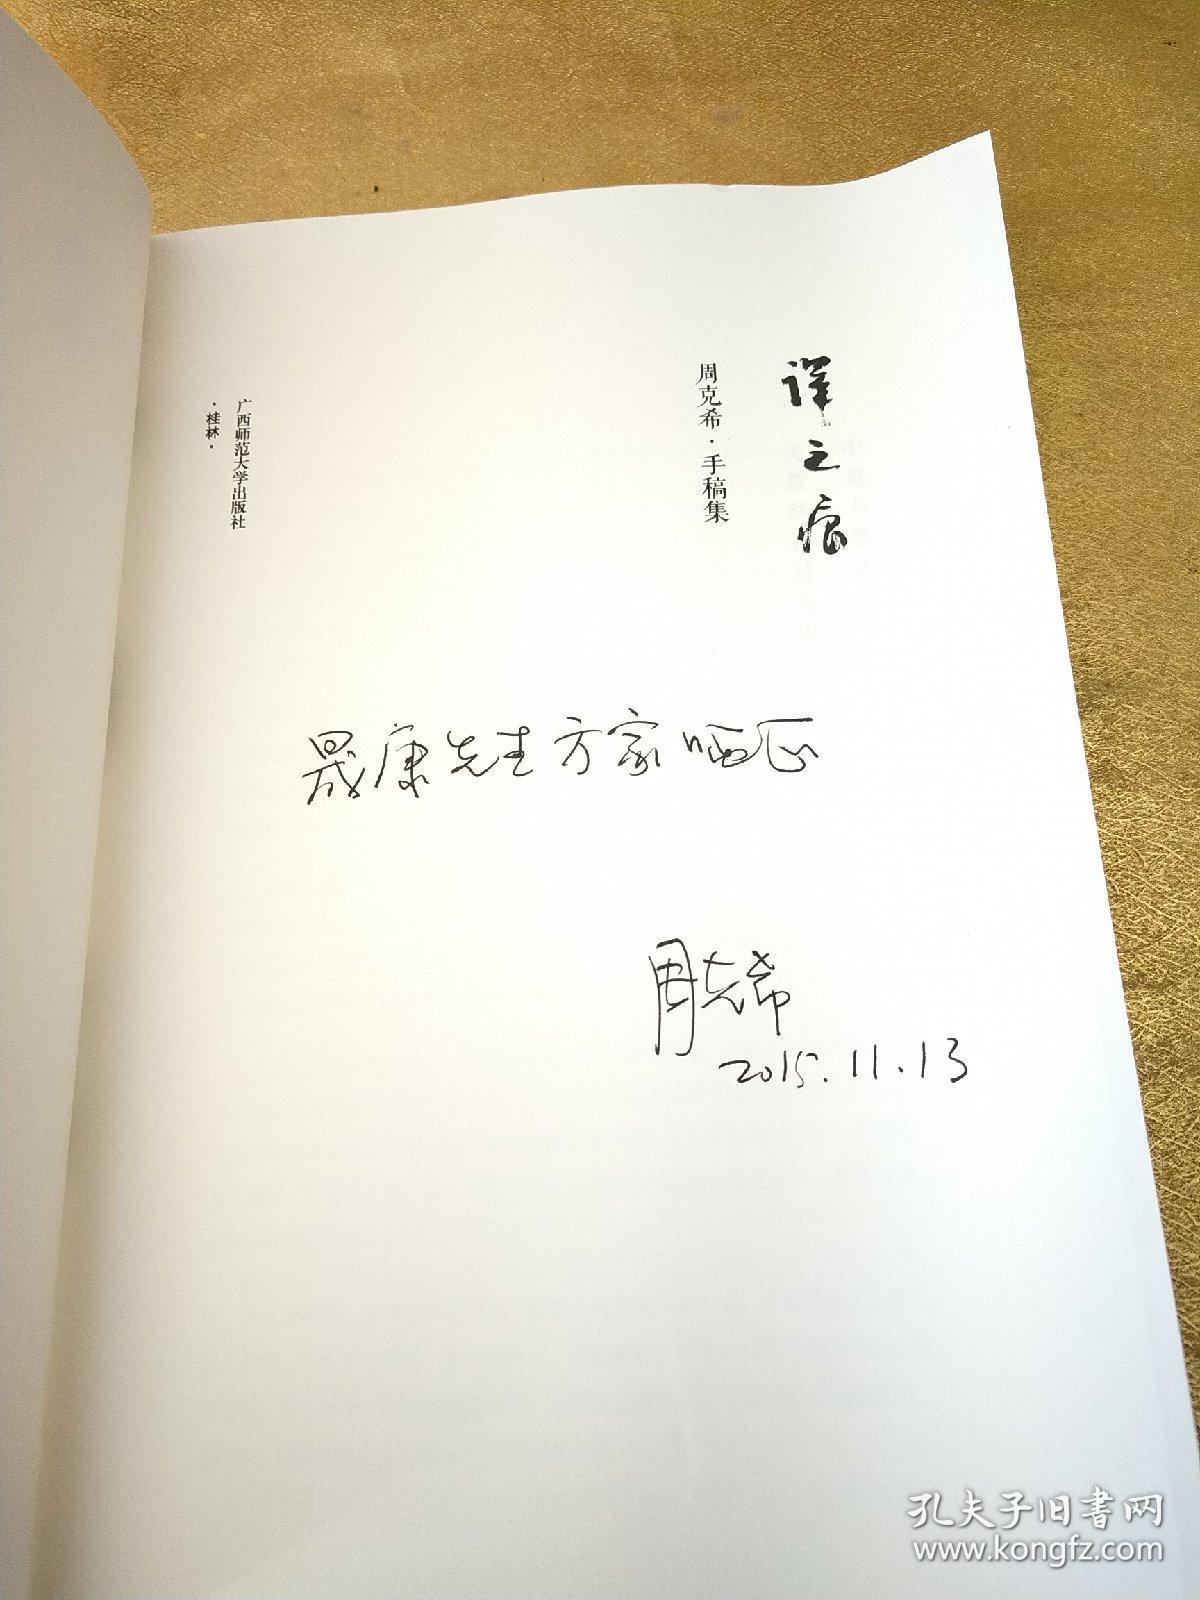 译之痕
周克希·手稿集
广西师范大学出版社
·桂林·
晟康先生方家哂正
周克希
2015.11.13
孔夫子旧书网
www.kongfz.com